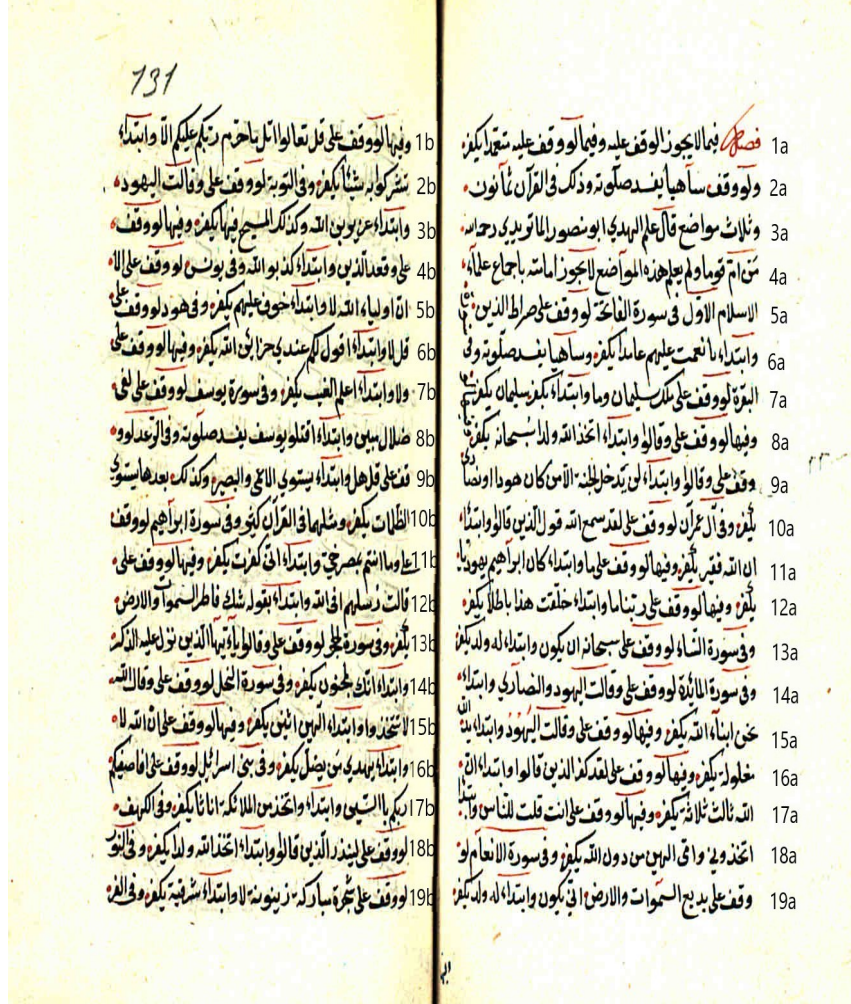 فصل فيما لا يجوز الوقف عليه وفيما لو وقف عليه متعمدا يكفر 1a
ولو وقف ساهيا يفسد صلوته وذلك فى القرآن ثمانون 2a
وثلاث مواضع قال علم الهدي ابو منصور الماتريدي رحمه الله 3a
من ام قوما ولم يعلم هذه المواضع لا يجوز امامته باجماع علماء 4a
الاسلام الاول فى سورة الفاتحة لو وقف على صراط الذين 5a
وابتداء بانعمت عليهم عامدا يكفر وساهيا يفسد صلوته وفى 6a
البقرة لو وقف على ملك سليمان وما وابتداء بكفر سليمان يكفر 7a
وفيها لو وقف على وقالوا وابتداء اتخذ الله ولدا سبحانه يكفر 8a
وقف على وقالوا وابتداء لن يدخل الجنة الا من كان هودا او نصارى 9a
يكفر وفى آل عمران لو وقف على لقد سمع الله قول الذين قالوا وابتداء 10a
ان الله فقير يكفر وفيها لو وقف على ما وابتداء كان ابراهيم يهوديا 11a
يكفر وفيها لو وقف على ربنا ما وابتداء خلقت هذا باطلا يكفر 12a
وفى سورة النساء لو وقف على سبحانه ان يكون وابتداء له ولد يكفر 13a
وفى سورة المائدة لو وقف على وقالت اليهود والنصاري وابتداء 14a
نحن ابناء الله يكفر وفيها لو وقف على وقالت اليهود وابتداء يد الله 15a
مغلولة يكفر وفيها لو وقف على لقد كفر الذين قالوا وابتداء ان 16a
الله ثالث ثلاثة يكفر وفيها لو وقف على انت قلت للناس وابتداء 17a
اتخذوني وامى الهين من دون الله يكفر وفى سورة الانعام لو 18a
وقف على بديع السموات والارض انى يكون وابتداء له ولد يكفر 19a
131
وفيها لو وقف على قل تعالوا اتل ما حرم ربكم عليكم الا وابتداء 1b
تشركوا به شيئا يكفر وفى التوبة لو وقف على وقالت اليهود 2b
وابتداء عزير بن الله وكذلك المسيح فيها يكفر وفيها لو وقف 3b
على وقعد الذين وابتداء كذبوا الله وفى يونس لو وقف على الا 4b
ان اولياء الله لا وابتداء خوف عليهم يكفر وفى هود لو وقف على 5b
قل لا وابتداء اقول لكم عندي خزائن الله يكفر وفيها لو وقف على 6b
ولا وابتداء اعلم الغيب يكفر وفى سورة يوسف لو وقف على لفى 7b
ضلال مبين وابتداء اقتلوا يوسف يفسد صلوته وفى الرعد لو و 8b
قف على قل هل وابتداء يستوي الاعمى والبصير وكذلك بعدها يستوي 9b
الظلمات يكفر ومثلهما فى القرآن كثير وفى سورة ابراهيم لو وقف 10b
على وما انتم بمصرخي وابتداء انى كفرت يكفر وفيها لو وقف على 11b
قالت رسلهم افى الله وابتداء بقوله شك فاطر السموات والارض 12b
يكفر وفى سورة الحجر لو وقف على وقالوا يآ ايها الذين نزل عليه الذكر 13b
وابتداء انك لمجنون يكفر وفى سورة النحل لو وقف على وقال الله 14b
لا تتخذوا وابتداء الهين اثنين يكفر وفيها لو وقف على ان الله لا 15b
وابتداء يهدي من يضل يكفر وفى بنى اسرائيل لو وقف على افاصفيكم 16b
ربكم بالبنين وابتداء واتخذ من الملائكة اناثا يكفر وفى الكهف 17b
لو وقف على لينذر الذين قالوا وابتداء اتخذ الله ولدا يكفر وفى النور 18b
لو وقف على شجرة مباركة زيتونة لا وابتداء شرقية يكفر وفى الفر 19b